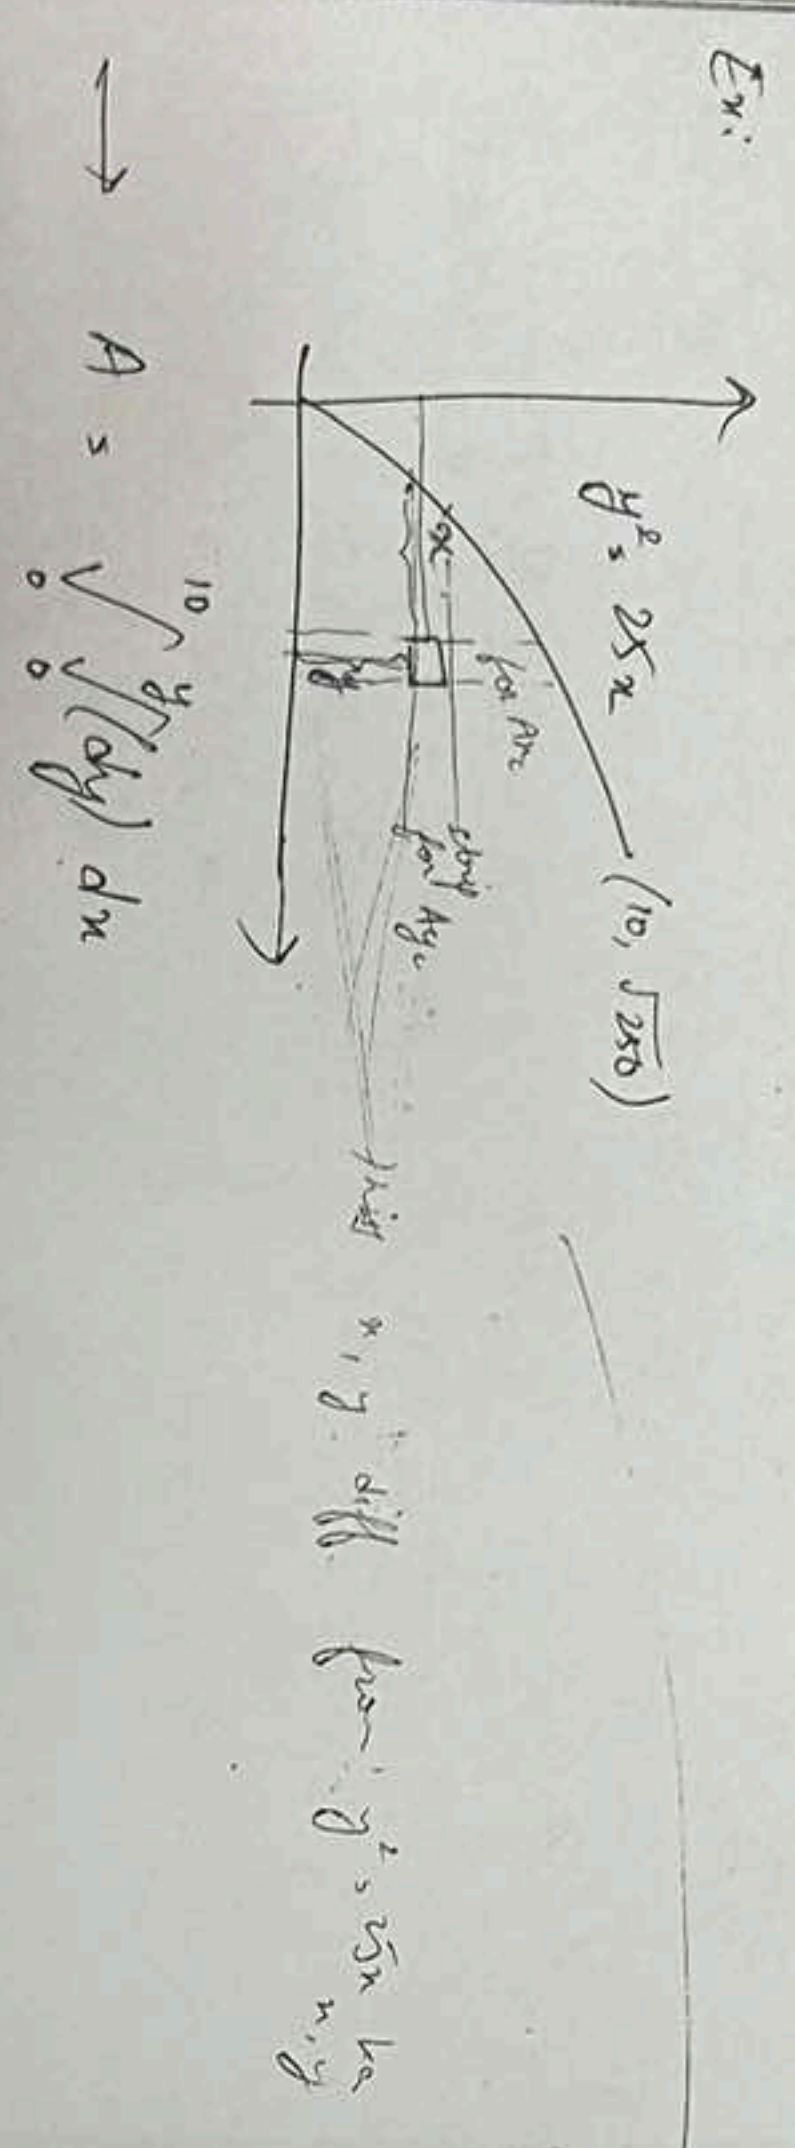 Ex:
y² = 25x
(10, √250)
x
for Axc
y
strip
for Ayc
this x, y diff. from y² = 25x ka
x, y
→ A = ∫₀¹⁰ ∫₀ʸ (dy) dx